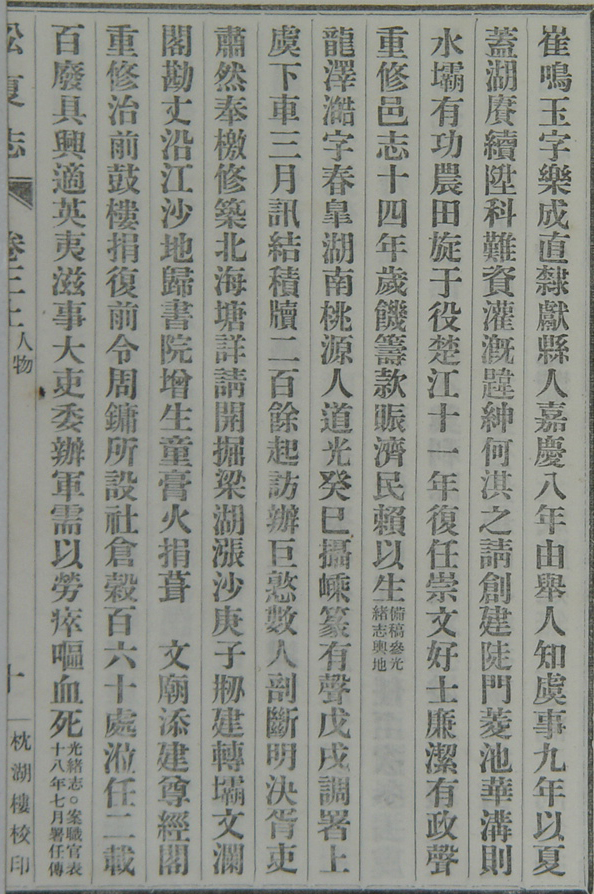 崔鳴玉字樂成直隸獻縣人嘉慶八年由舉人知虞事九年以夏
蓋湖賡續陞科難資灌漑韙紳何淇之請創建陡門菱池華溝則
水壩有功農田旋于役楚江十一年復任崇文好士廉潔有政聲
重修邑志十四年歲饑籌款賑濟民賴以生備稿參光緒志輿地
龍澤澔字春臯湖南桃源人道光癸巳攝嵊篆有聲戊戌調署上
虞下車三月訊結積牘二百餘起訪辦巨憝數人剖斷明決胥吏
肅然奉檄修築北海塘詳請開掘梁湖漲沙庚子刱建轉壩文瀾
閣勘丈沿江沙地歸書院增生童膏火捐葺 文廟添建尊經閣
重修治前鼓樓捐復前令周鏞所設社倉穀百六十處涖任二載
百廢具興適英夷滋事大吏委辦軍需以勞瘁嘔血死光緒志○案職官表十八年七月署任傳
松夏志 卷三上 人物 十 枕湖樓校印